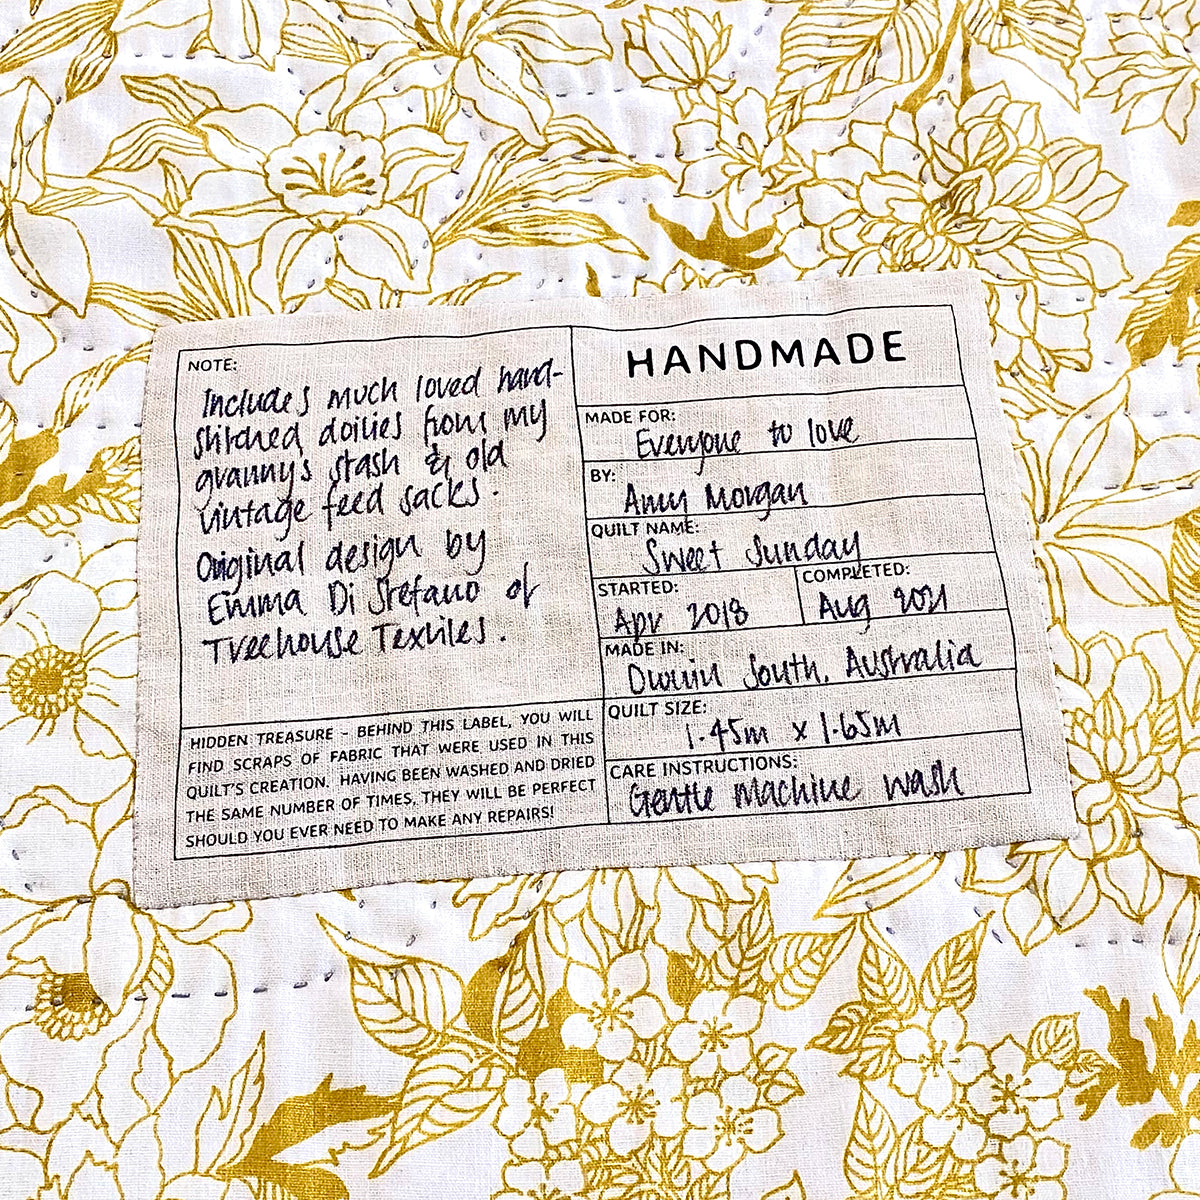 NOTE:
Includes much loved hand-
stitched doilies from my
granny's stash & old
vintage feed sacks.
Original design by
Emma Di Stefano of
Treehouse Textiles.
HIDDEN TREASURE – BEHIND THIS LABEL, YOU WILL
FIND SCRAPS OF FABRIC THAT WERE USED IN THIS
QUILT'S CREATION. HAVING BEEN WASHED AND DRIED
THE SAME NUMBER OF TIMES, THEY WILL BE PERFECT
SHOULD YOU EVER NEED TO MAKE ANY REPAIRS!
HANDMADE
MADE FOR:
Everyone to love
BY:
Morgan
QUILT NAME:
Sweet Sunday
STARTED:
Apr 2018
COMPLETED:
Aug 2021
MADE IN:
South, Australia
QUILT SIZE:
1.45m x 1.65m
CARE INSTRUCTIONS:
Gentle Machine Wash